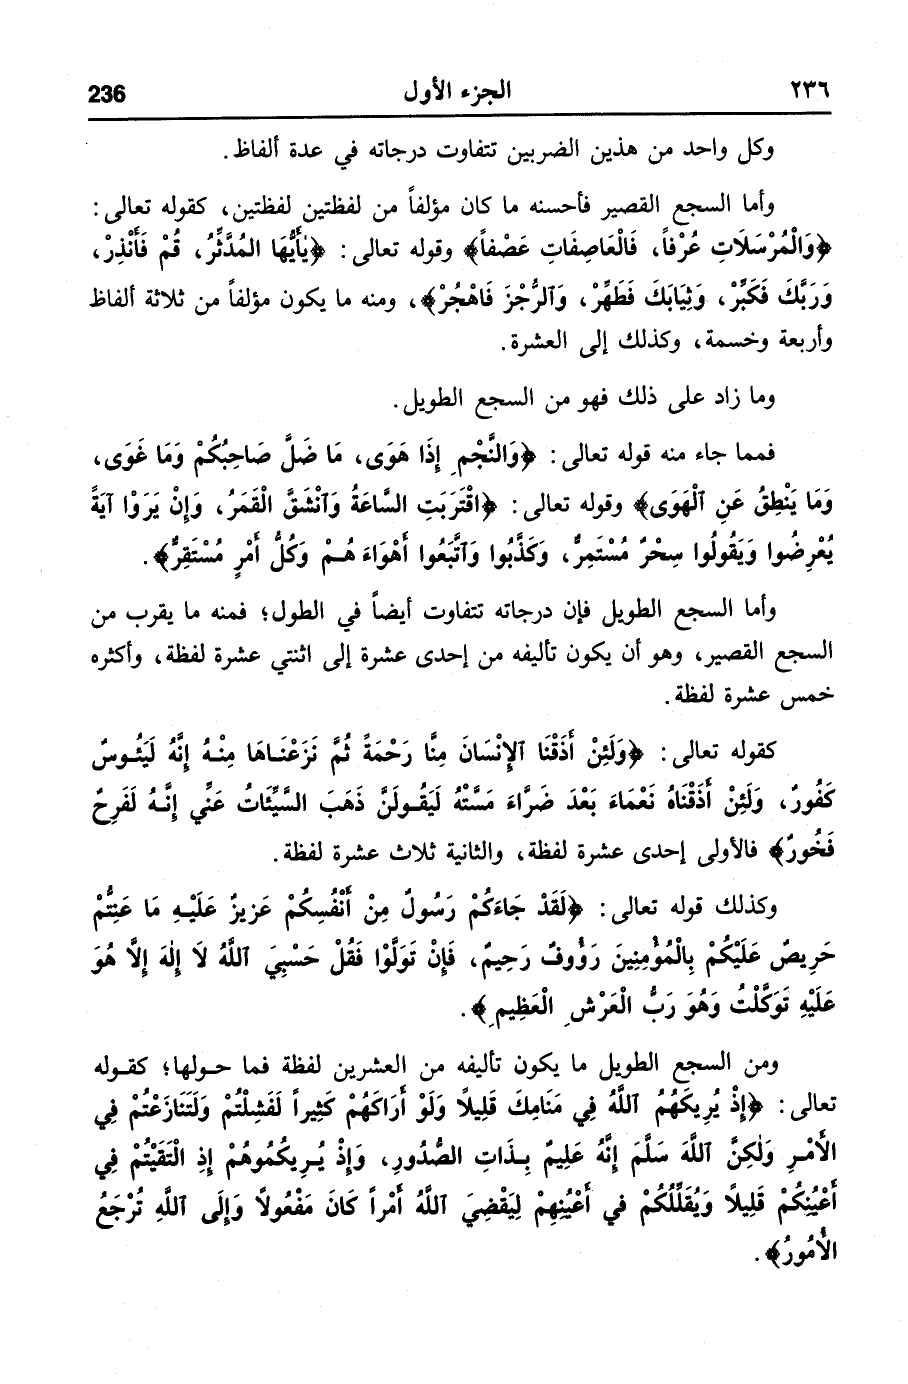 ٢٣٦ الجزء الأول 236
وكل واحد من هذين الضربين تتفاوت درجاته في عدة ألفاظ.
وأما السجع القصير فأحسنه ما كان مؤلفاً من لفظتين لفظتين، كقوله تعالى:
﴿وَالْمُرْسَلَاتِ عُرْفاً، فَالْعَاصِفَاتِ عَصْفاً﴾ وقوله تعالى: ﴿يٰأَيُّهَا المُدَّثِّرُ، قُمْ فَأَنْذِرْ،
وَرَبَّكَ فَكَبِّرْ، وَثِيَابَكَ فَطَهِّرْ، وَٱلرُّجْزَ فَاهْجُرْ﴾، ومنه ما يكون مؤلفاً من ثلاثة ألفاظ
وأربعة وخسمة، وكذلك إلى العشرة.
وما زاد على ذلك فهو من السجع الطويل.
فمما جاء منه قوله تعالى: ﴿وَالنَّجْمِ إِذَا هَوَى، مَا ضَلَّ صَاحِبُكُمْ وَمَا غَوَى،
وَمَا يَنْطِقُ عَنِ ٱلْهَوَى﴾ وقوله تعالى: ﴿اقْتَرَبَتِ السَّاعَةُ وَٱنْشَقَّ الْقَمَرُ، وَإِنْ يَرَوْا آيَةً
يُعْرِضُوا وَيَقُولُوا سِحْرٌ مُسْتَمِرٌّ، وَكَذَّبُوا وَٱتَّبَعُوا أَهْوَاءَهُمْ وَكُلُّ أَمْرٍ مُسْتَقِرٌّ﴾.
وأما السجع الطويل فإن درجاته تتفاوت أيضاً في الطول؛ فمنه ما يقرب من
السجع القصير، وهو أن يكون تأليفه من إحدى عشرة إلى اثنتي عشرة لفظة، وأكثره
خمس عشرة لفظة.
كقوله تعالى: ﴿وَلَئِنْ أَذَقْنَا ٱلإِنْسَانَ مِنَّا رَحْمَةً ثُمَّ نَزَعْنَاهَا مِنْهُ إِنَّهُ لَيَئُوسٌ
كَفُورٌ، وَلَئِنْ أَذَقْنَاهُ نَعْمَاءَ بَعْدَ ضَرَّاءَ مَسَّتْهُ لَيَقُولَنَّ ذَهَبَ السَّيِّئَاتُ عَنِّي إِنَّهُ لَفَرِحٌ
فَخُورٌ﴾ فالأولى إحدى عشرة لفظة، والثانية ثلاث عشرة لفظة.
وكذلك قوله تعالى: ﴿لَقَدْ جَاءَكُمْ رَسُولٌ مِنْ أَنْفُسِكُمْ عَزِيزٌ عَلَيْهِ مَا عَنِتُّمْ
حَرِيصٌ عَلَيْكُمْ بِالْمُؤْمِنِينَ رَؤُوفٌ رَحِيمٌ، فَإِنْ تَوَلَّوْا فَقُلْ حَسْبِيَ ٱللَّهُ لَا إِلٰهَ إِلَّا هُوَ
عَلَيْهِ تَوَكَّلْتُ وَهُوَ رَبُّ الْعَرْشِ الْعَظِيمِ﴾.
ومن السجع الطويل ما يكون تأليفه من العشرين لفظة فما حولها؛ كقوله
تعالى: ﴿إِذْ يُرِيكَهُمُ ٱللَّهُ فِي مَنَامِكَ قَلِيلًا وَلَوْ أَرَاكَهُمْ كَثِيراً لَفَشِلْتُمْ وَلَتَنَازَعْتُمْ فِي
الأَمْرِ وَلٰكِنَّ ٱللَّهَ سَلَّمَ إِنَّهُ عَلِيمٌ بِذَاتِ الصُّدُورِ، وَإِذْ يُرِيكُمُوهُمْ إِذِ الْتَقَيْتُمْ فِي
أَعْيُنِكُمْ قَلِيلًا وَيُقَلِّلُكُمْ في أَعْيُنِهِمْ لِيَقْضِيَ ٱللَّهُ أَمْراً كَانَ مَفْعُولاً وَإِلَى ٱللَّهِ تُرْجَعُ
الأُمُورُ﴾.